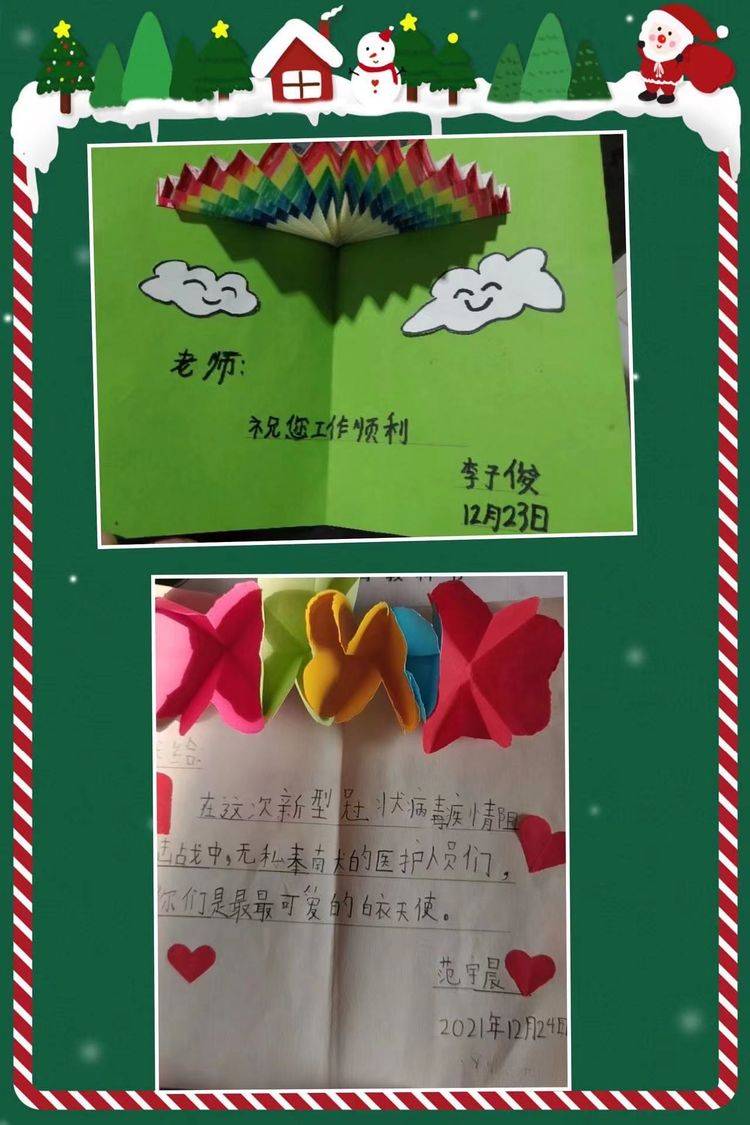 老师:
祝您工作顺利
李子俊
12月23日
给:
在这次新型冠状病毒疫情阻
击战中,无私奉献的医护人员们,
你们是最最可爱的白衣天使。
范宇晨
2021年12月24日